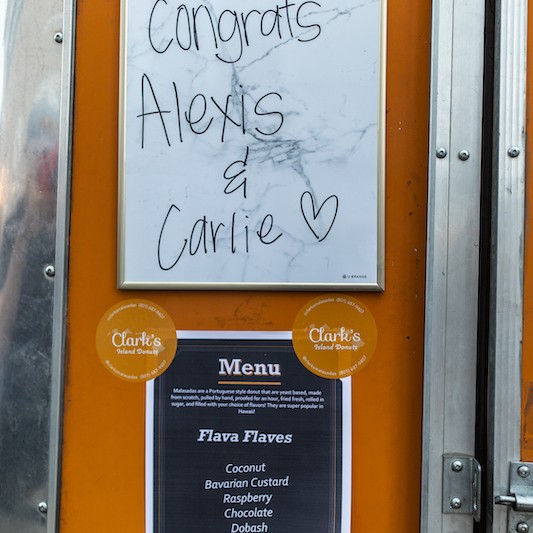 Congrats
Alexis
&
Carlie ♡
U BRANDS
Clark's
Island Donuts
Clark's
Island Donuts
Menu
Malasadas are a Portuguese style donut that are yeast based, made
from scratch, pulled by hand, proofed for an hour, fried fresh, rolled in
sugar, and filled with your choice of flavors! They are super popular in
Hawaii!
Flava Flaves
Coconut
Bavarian Custard
Raspberry
Chocolate
Dobash